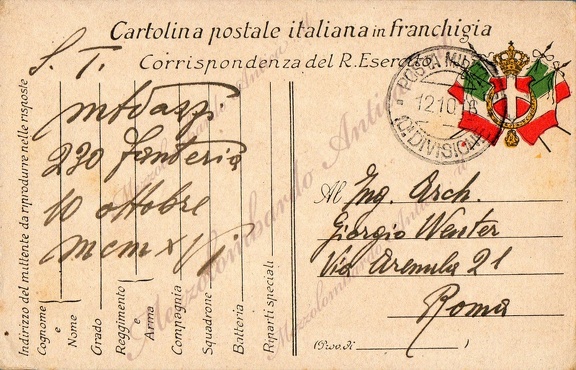 Cartolina postale italiana in franchigia
Corrispondenza del R. Esercito
S. T.
230 fanteria
10 ottobre
POSTA MILITARE
12.10.
DIVISIONE
Al Ing. Arch.
Giorgio Wenter
Via Arenula 21
Roma
(Prov. di )
Indirizzo del mittente da riprodurre nelle risposte
Cognome e Nome
Grado
Reggimento e Arma
Compagnia
Squadrone
Batteria
Riparti speciali
Mezzolombardo